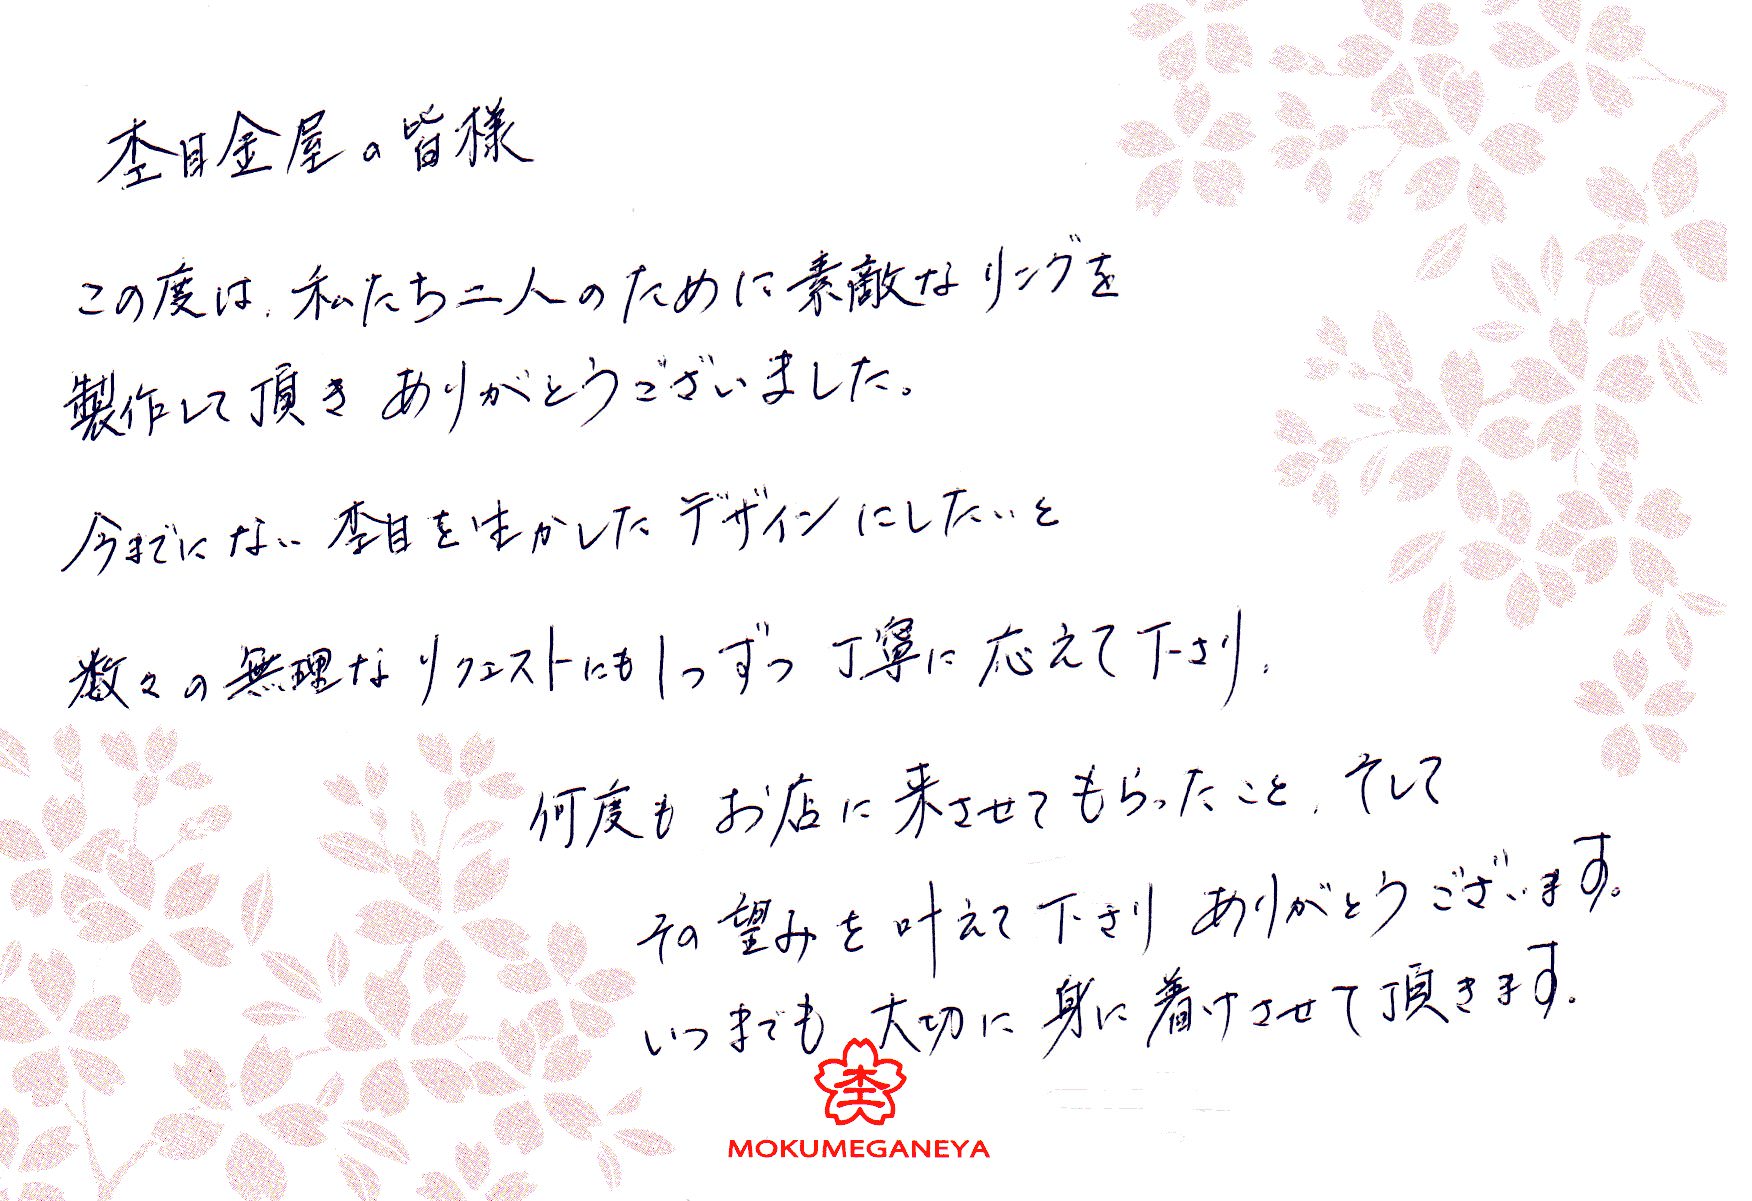 杢目金屋の皆様
この度は、私たち二人のために素敵なリングを
製作して頂き ありがとうございました。
今までにない 杢目を生かした デザインにしたいと
数々の無理なリクエストにも1つずつ 丁寧に応えて下さり、
何度も お店に来させてもらったこと、そして
その望みを叶えて下さり ありがとうございます。
いつまでも 大切に身に着けさせて頂きます。
杢
MOKUMEGANEYA